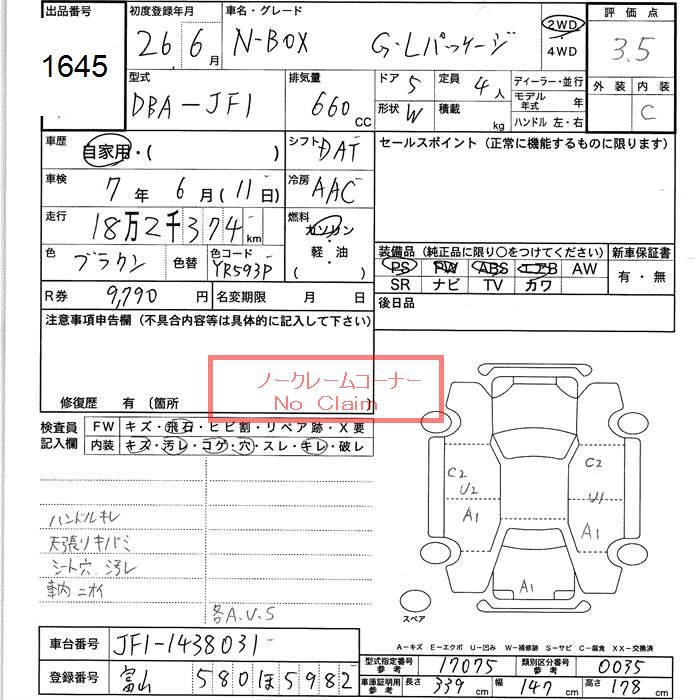 出品番号 初度登録年月 車名・グレード 評価点
1645 26 年 6 月 N-BOX G・Lパッケージ 2WD ・ 4WD 3.5
型式 排気量 ドア 5 定員 4 人 ディーラー・並行 外装 内装
DBA-JF1 660 CC 形状 W 積載 kg モデル年式 年 C
ハンドル 左・右
車歴 自家用・( ) シフト DAT セールスポイント (正常に機能するものに限ります)
車検 7 年 6 月 (11 日) 冷房 AAC
走行 18万2千374 km 燃料 ガソリン
軽・油
( )
色 ブラウン 色替 色コード YR593P 装備品 (純正品に限り○をつけてください) 新車保証書
PS PW ABS エアB AW 有・無
SR ナビ TV カワ
R券 9,790 円 名変期限 月 日 後日品
注意事項申告欄 (不具合内容等は具体的に記入して下さい)
ノークレームコーナー
No Claim
修復歴 有 (箇所 )
検査員記入欄 FW キズ・飛石・ヒビ割・リペア跡・X要
内装 キズ・汚レ・コゲ・穴・スレ・キレ・破レ
C2 C2
U2 U1
A1 A1
A1
ハンドルキレ
天張リキバミ
シート穴、汚レ
車内ニオイ
各A.U.S
スペア
A-キズ E-エクボ U-凹み W-補修跡 S-サビ C-腐食 XX-交換済
車台番号 JF1-1438031 型式指定番号 参考 17075 類別区分番号 参考 0035
登録番号 富山 580 ほ 5982 車庫証明用 参考 長さ 339 cm 幅 147 cm 高さ 178 cm